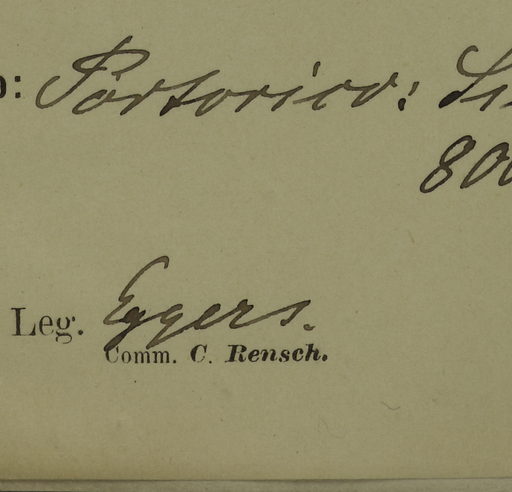 o: Portorico:
800
Leg. Eggers.
Comm. C. Rensch.